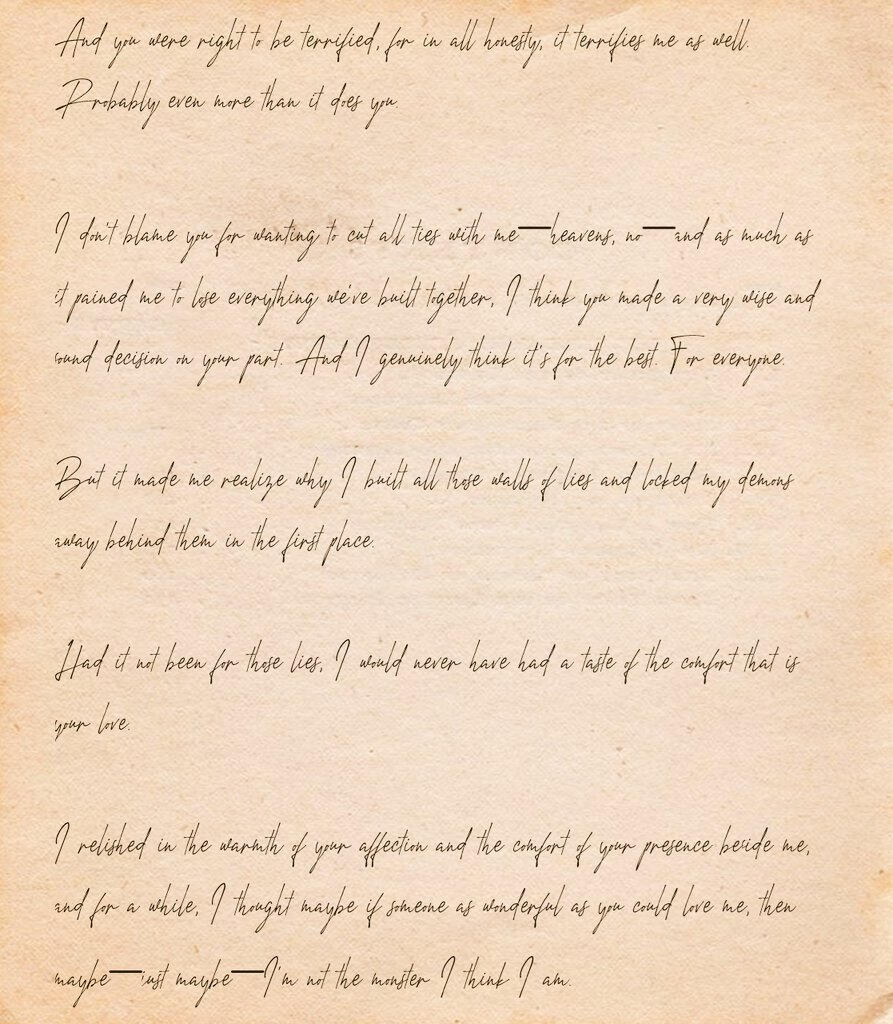 And you were right to be terrified, for in all honesty, it terrifies me as well.
Probably even more than it does you.
I don't blame you for wanting to cut all ties with me—heavens, no—and as much as
it pained me to lose everything we've built together, I think you made a very wise and
sound decision on your part. And I genuinely think it's for the best. For everyone.
But it made me realize why I built all those walls of lies and locked my demons
away behind them in the first place.
Had it not been for those lies, I would never have had a taste of the comfort that is
your love.
I relished in the warmth of your affection and the comfort of your presence beside me,
and for a while, I thought maybe if someone as wonderful as you could love me, then
maybe—just maybe—I'm not the monster I think I am.